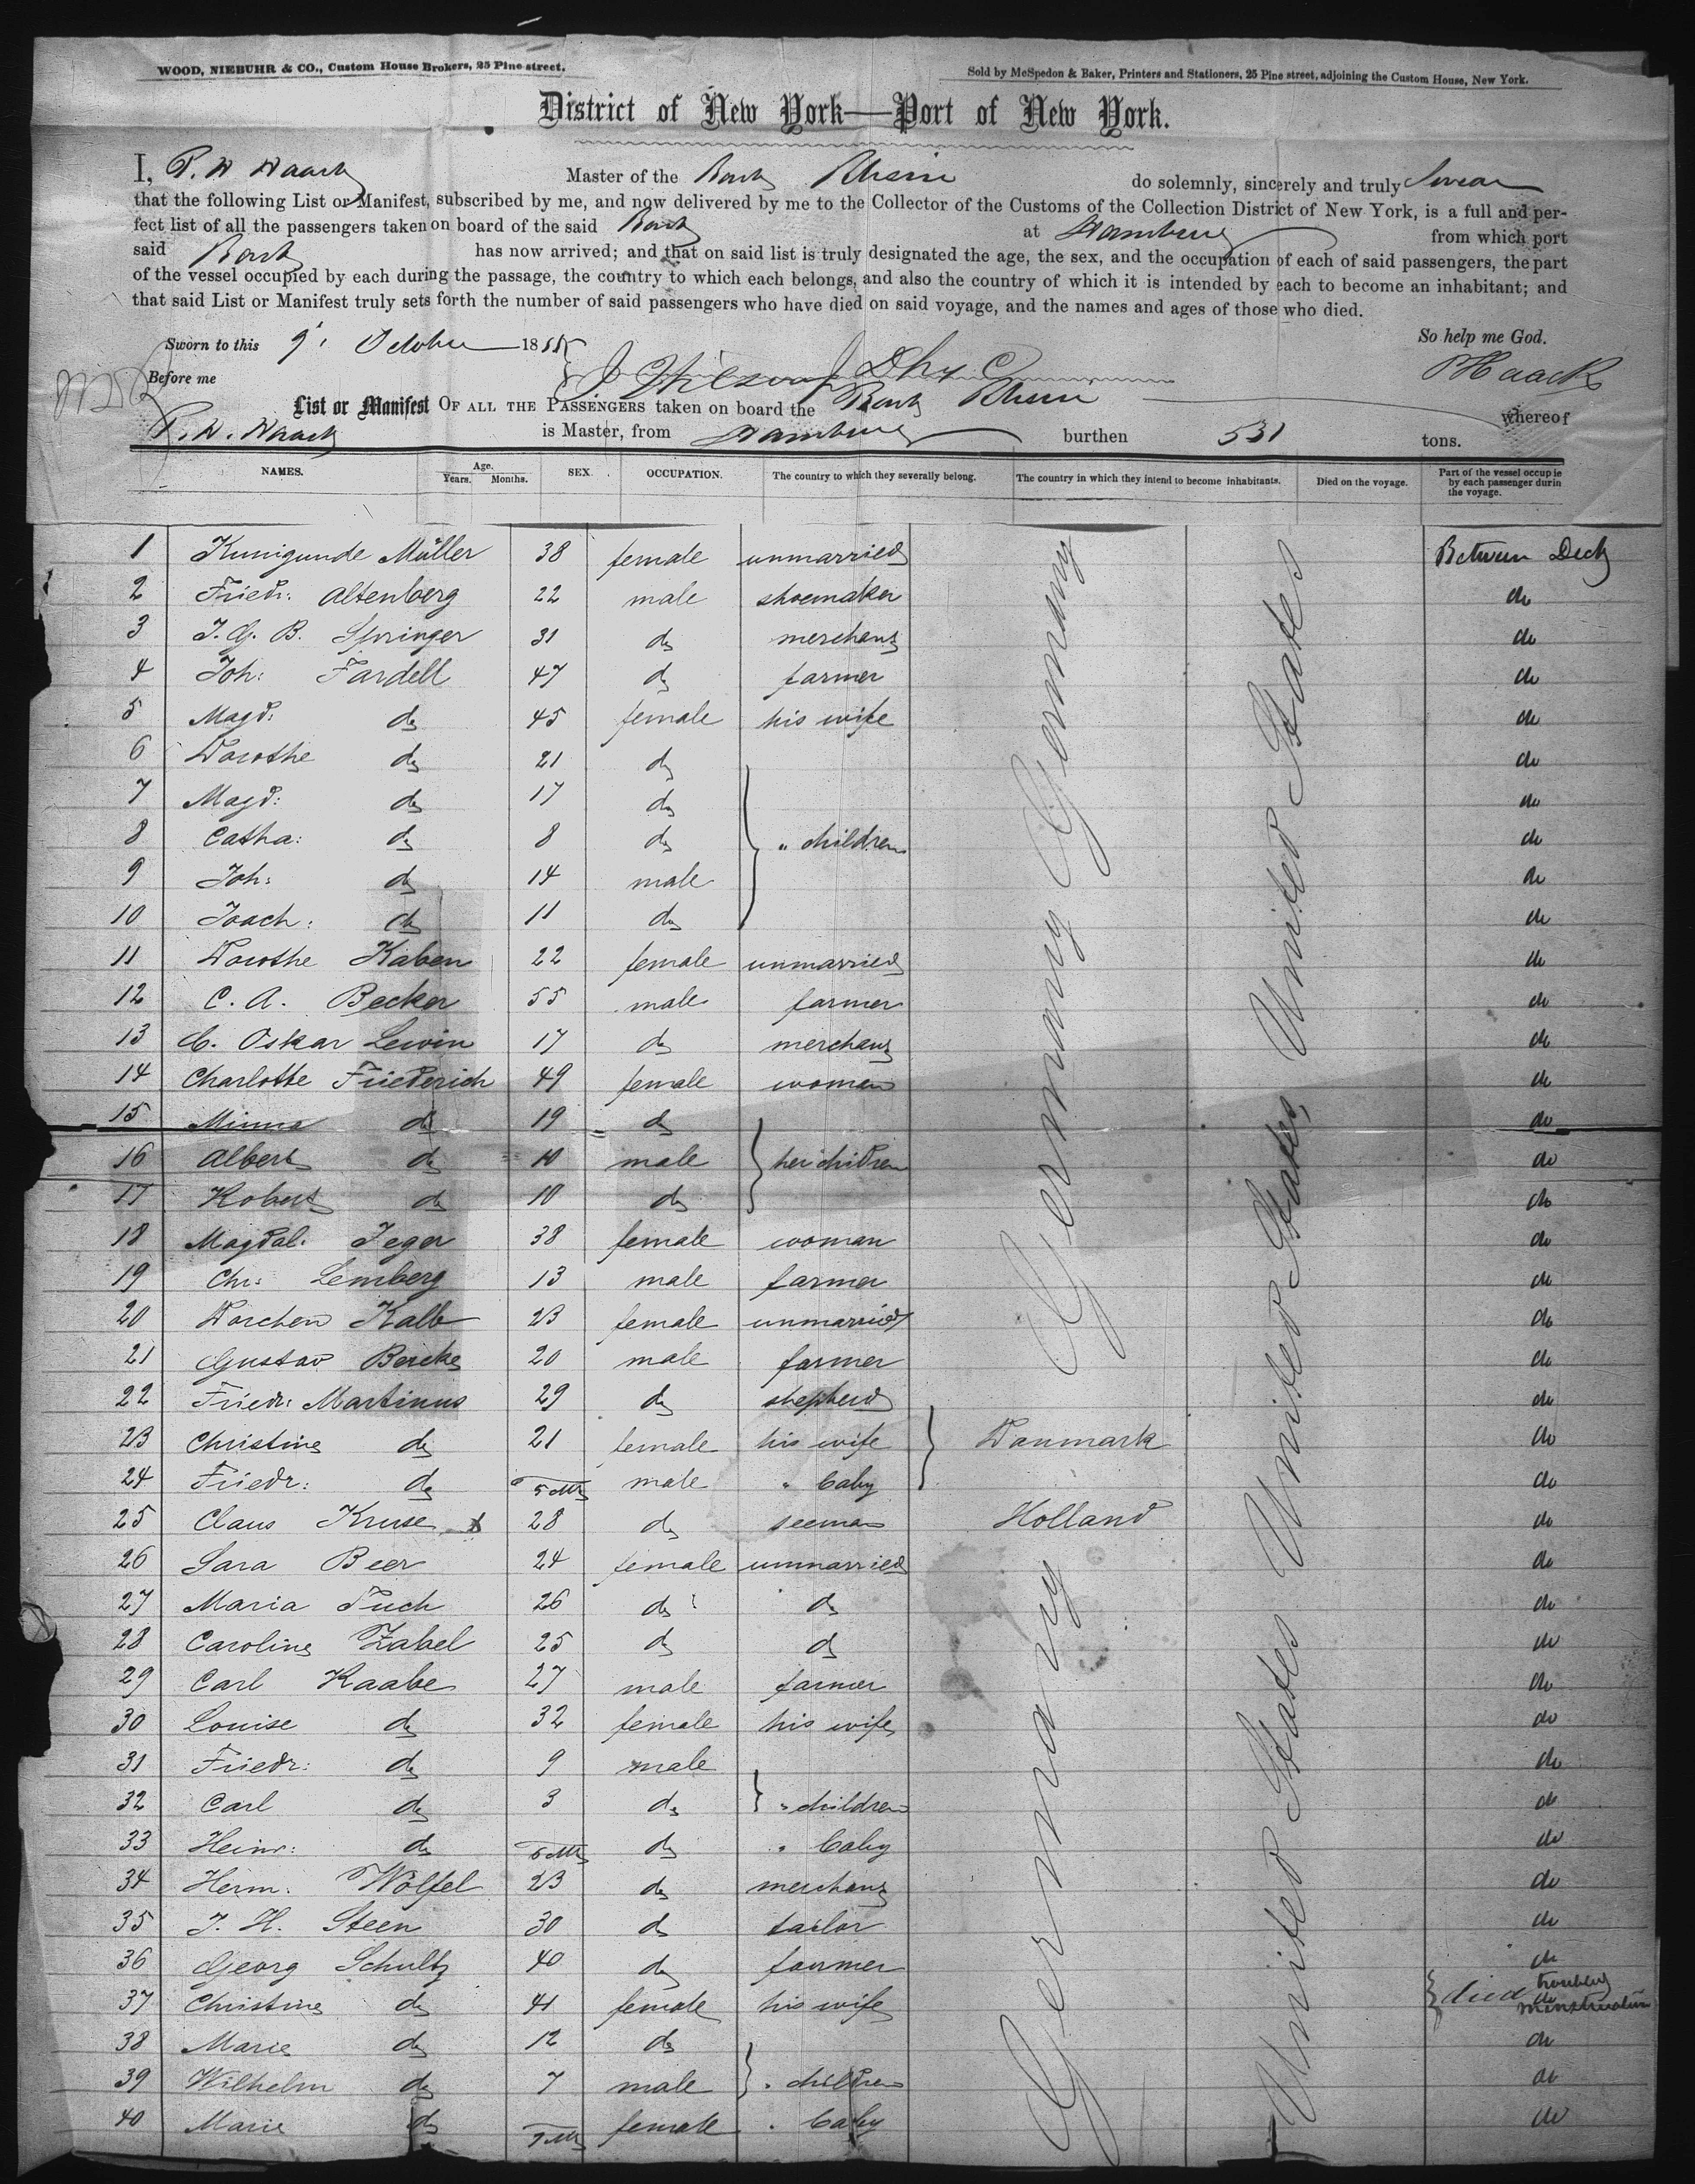 WOOD, NIEBUHR & CO., Custom House Brokers, 25 Pine street.
Sold by McSpedon & Baker, Printers and Stationers, 25 Pine street, adjoining the Custom House, New York.
District of New York—Port of New York.
I, P. W Haack Master of the Bark Rhein do solemnly, sincerely and truly Swear
that the following List or Manifest, subscribed by me, and now delivered by me to the Collector of the Customs of the Collection District of New York, is a full and per-
fect list of all the passengers taken on board of the said Bark at Hamburg from which port
said Bark has now arrived; and that on said list is truly designated the age, the sex, and the occupation of each of said passengers, the part
of the vessel occupied by each during the passage, the country to which each belongs, and also the country of which it is intended by each to become an inhabitant; and
that said List or Manifest truly sets forth the number of said passengers who have died on said voyage, and the names and ages of those who died.
Sworn to this 9' October 1855 So help me God.
Before me PHaack
List or Manifest OF ALL THE PASSENGERS taken on board the Bark Rhein whereof
P. W. Haack is Master, from Hamburg burthen 531 tons.
NAMES. Age. Years. Months. SEX. OCCUPATION. The country to which they severally belong. The country in which they intend to become inhabitants. Died on the voyage. Part of the vessel occupie by each passenger durin the voyage.
1 Kunigunde Müller 38 female unmarried Between Deck
2 Friedr: Altenberg 22 male shoemaker do
3 J. G. B. Springer 31 do merchant do
4 Joh: Fardell 47 do farmer do
5 Magd: do 45 female his wife do
6 Dorothe do 21 do do
7 Magd: do 17 do do
8 Catha: do 8 do " children do
9 Joh: do 14 male do
10 Joach: do 11 do do
11 Dorothe Kaben 22 female unmarried do
12 C. A. Becker 55 male farmer do
13 C. Oskar Lewin 17 do merchant do
14 Charlotte Friederich 49 female woman do
15 Minna do 19 do do
16 Albert do 10 male her children do
17 Robert do 10 do do
18 Magdal. Jeger 38 female woman do
19 Chr: Lemberg 13 male farmer do
20 Dorchen Kalb 23 female unmarried do
21 Gustav Bercke 20 male farmer do
22 Friedr: Martinus 29 do shepherd do
23 Christine do 21 female his wife Danmark do
24 Friedr: do 5 Mts male " baby do
25 Claus Kruse x 28 do seeman Holland do
26 Sara Beer 24 female unmarried do
27 Maria Tuch 26 do do do
28 Caroline Zabel 25 do do do
29 Carl Raabe 27 male farmer do
30 Louise do 32 female his wife do
31 Friedr: do 9 male do
32 Carl do 3 do " children do
33 Heinr: do 6 Mts do " baby do
34 Herm. Wölfel 23 do merchant do
35 J. H. Steen 30 do tailor do
36 Georg Schultz 40 do farmer do
37 Christine do 41 female his wife died do
38 Marie do 12 do do
39 Wilhelm do 7 male " children do
40 Marie do 9 Mts female " baby do
Germany Germany Germany
United States United States, United States United States